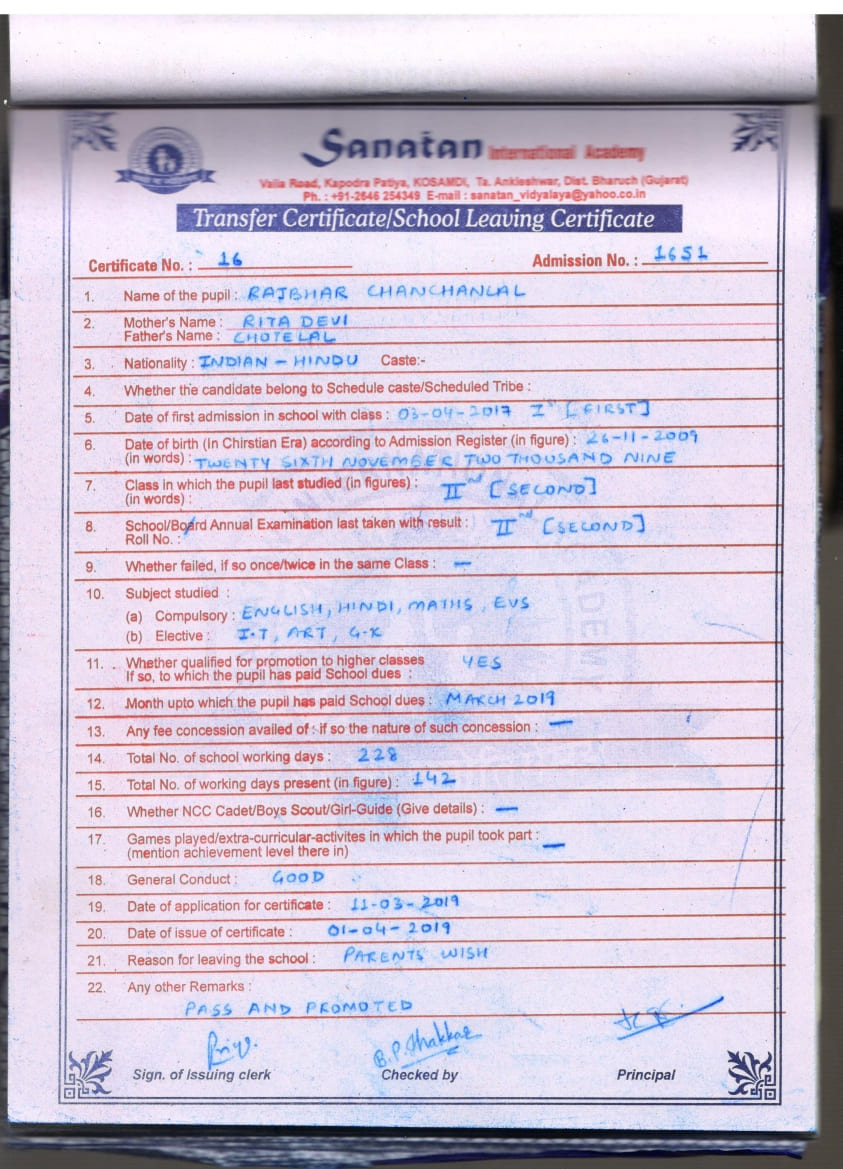 Sanatan International Academy
Valia Road, Kapodra Patiya, KOSAMDI, Ta. Ankleshwar, Dist. Bharuch (Gujarat)
Ph. : +91-2646 254349 E-mail : sanatan_vidyalaya@yahoo.co.in
Transfer Certificate/School Leaving Certificate
Certificate No. : 16 Admission No. : 1651
1. Name of the pupil : RAJBHAR CHANCHANLAL
2. Mother's Name : RITA DEVI
Father's Name : CHOTELAL
3. Nationality : INDIAN - HINDU Caste:-
4. Whether the candidate belong to Schedule caste/Scheduled Tribe :
5. Date of first admission in school with class : 03-04-2017 Ist [FIRST]
6. Date of birth (In Chirstian Era) according to Admission Register (in figure) : 26-11-2009
(in words) : TWENTY SIXTH NOVEMBER TWO THOUSAND NINE
7. Class in which the pupil last studied (in figures) : IInd [SECOND]
(in words) :
8. School/Board Annual Examination last taken with result : IInd [SECOND]
Roll No. :
9. Whether failed, if so once/twice in the same Class : —
10. Subject studied :
(a) Compulsory : ENGLISH, HINDI, MATHS, EVS
(b) Elective : I.T, ART, G.K
11. Whether qualified for promotion to higher classes YES
If so, to which the pupil has paid School dues :
12. Month upto which the pupil has paid School dues : MARCH 2019
13. Any fee concession availed of : if so the nature of such concession : —
14. Total No. of school working days : 228
15. Total No. of working days present (in figure) : 142
16. Whether NCC Cadet/Boys Scout/Girl-Guide (Give details) : —
17. Games played/extra-curricular-activites in which the pupil took part : —
(mention achievement level there in)
18. General Conduct : GOOD
19. Date of application for certificate : 11-03-2019
20. Date of issue of certificate : 01-04-2019
21. Reason for leaving the school : PARENTS WISH
22. Any other Remarks :
PASS AND PROMOTED
B.P.Thakkar
Sign. of Issuing clerk Checked by Principal